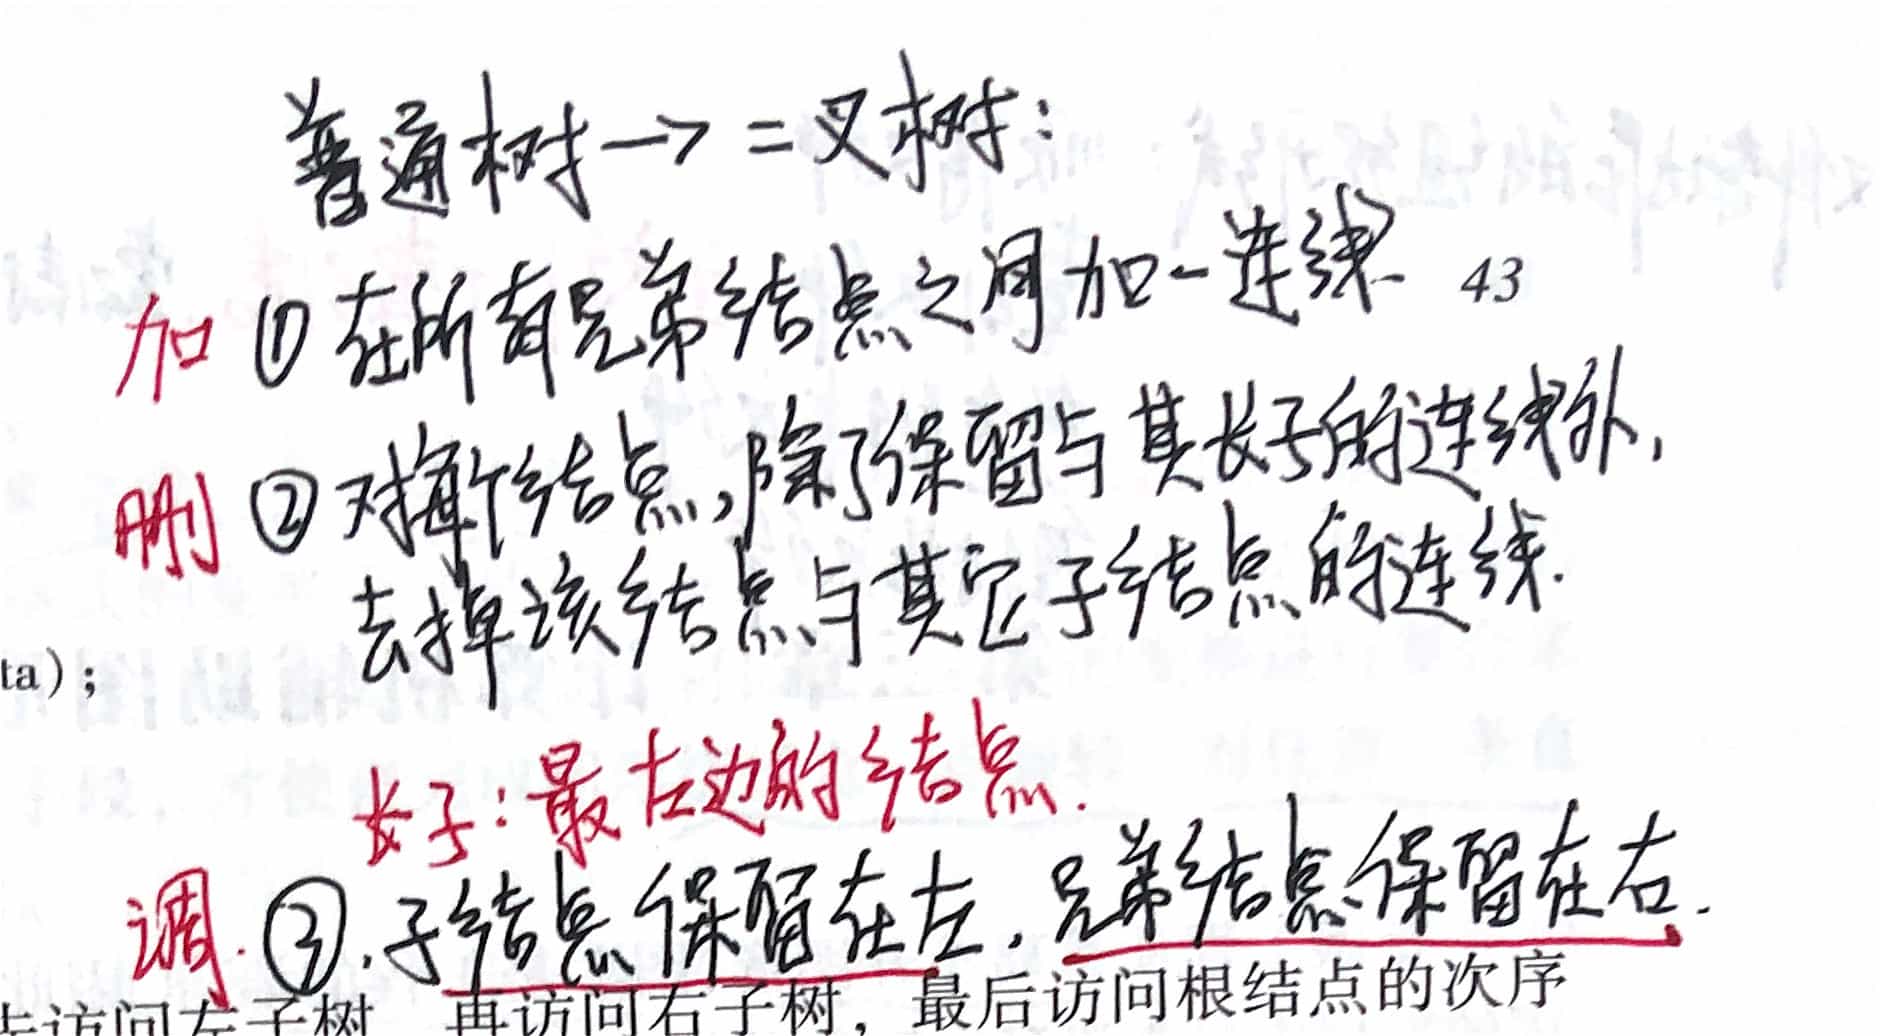 普通树→二叉树：
加 ①在所有兄弟结点之间加一连线. 43
删 ②对每个结点,除了保留与其长子的连线外,
去掉该结点与其它子结点的连线.
ta);
长子:最左边的结点.
调. ③.子结点保留在左,兄弟结点保留在右.
访问左子树 再访问右子树，最后访问根结点的次序